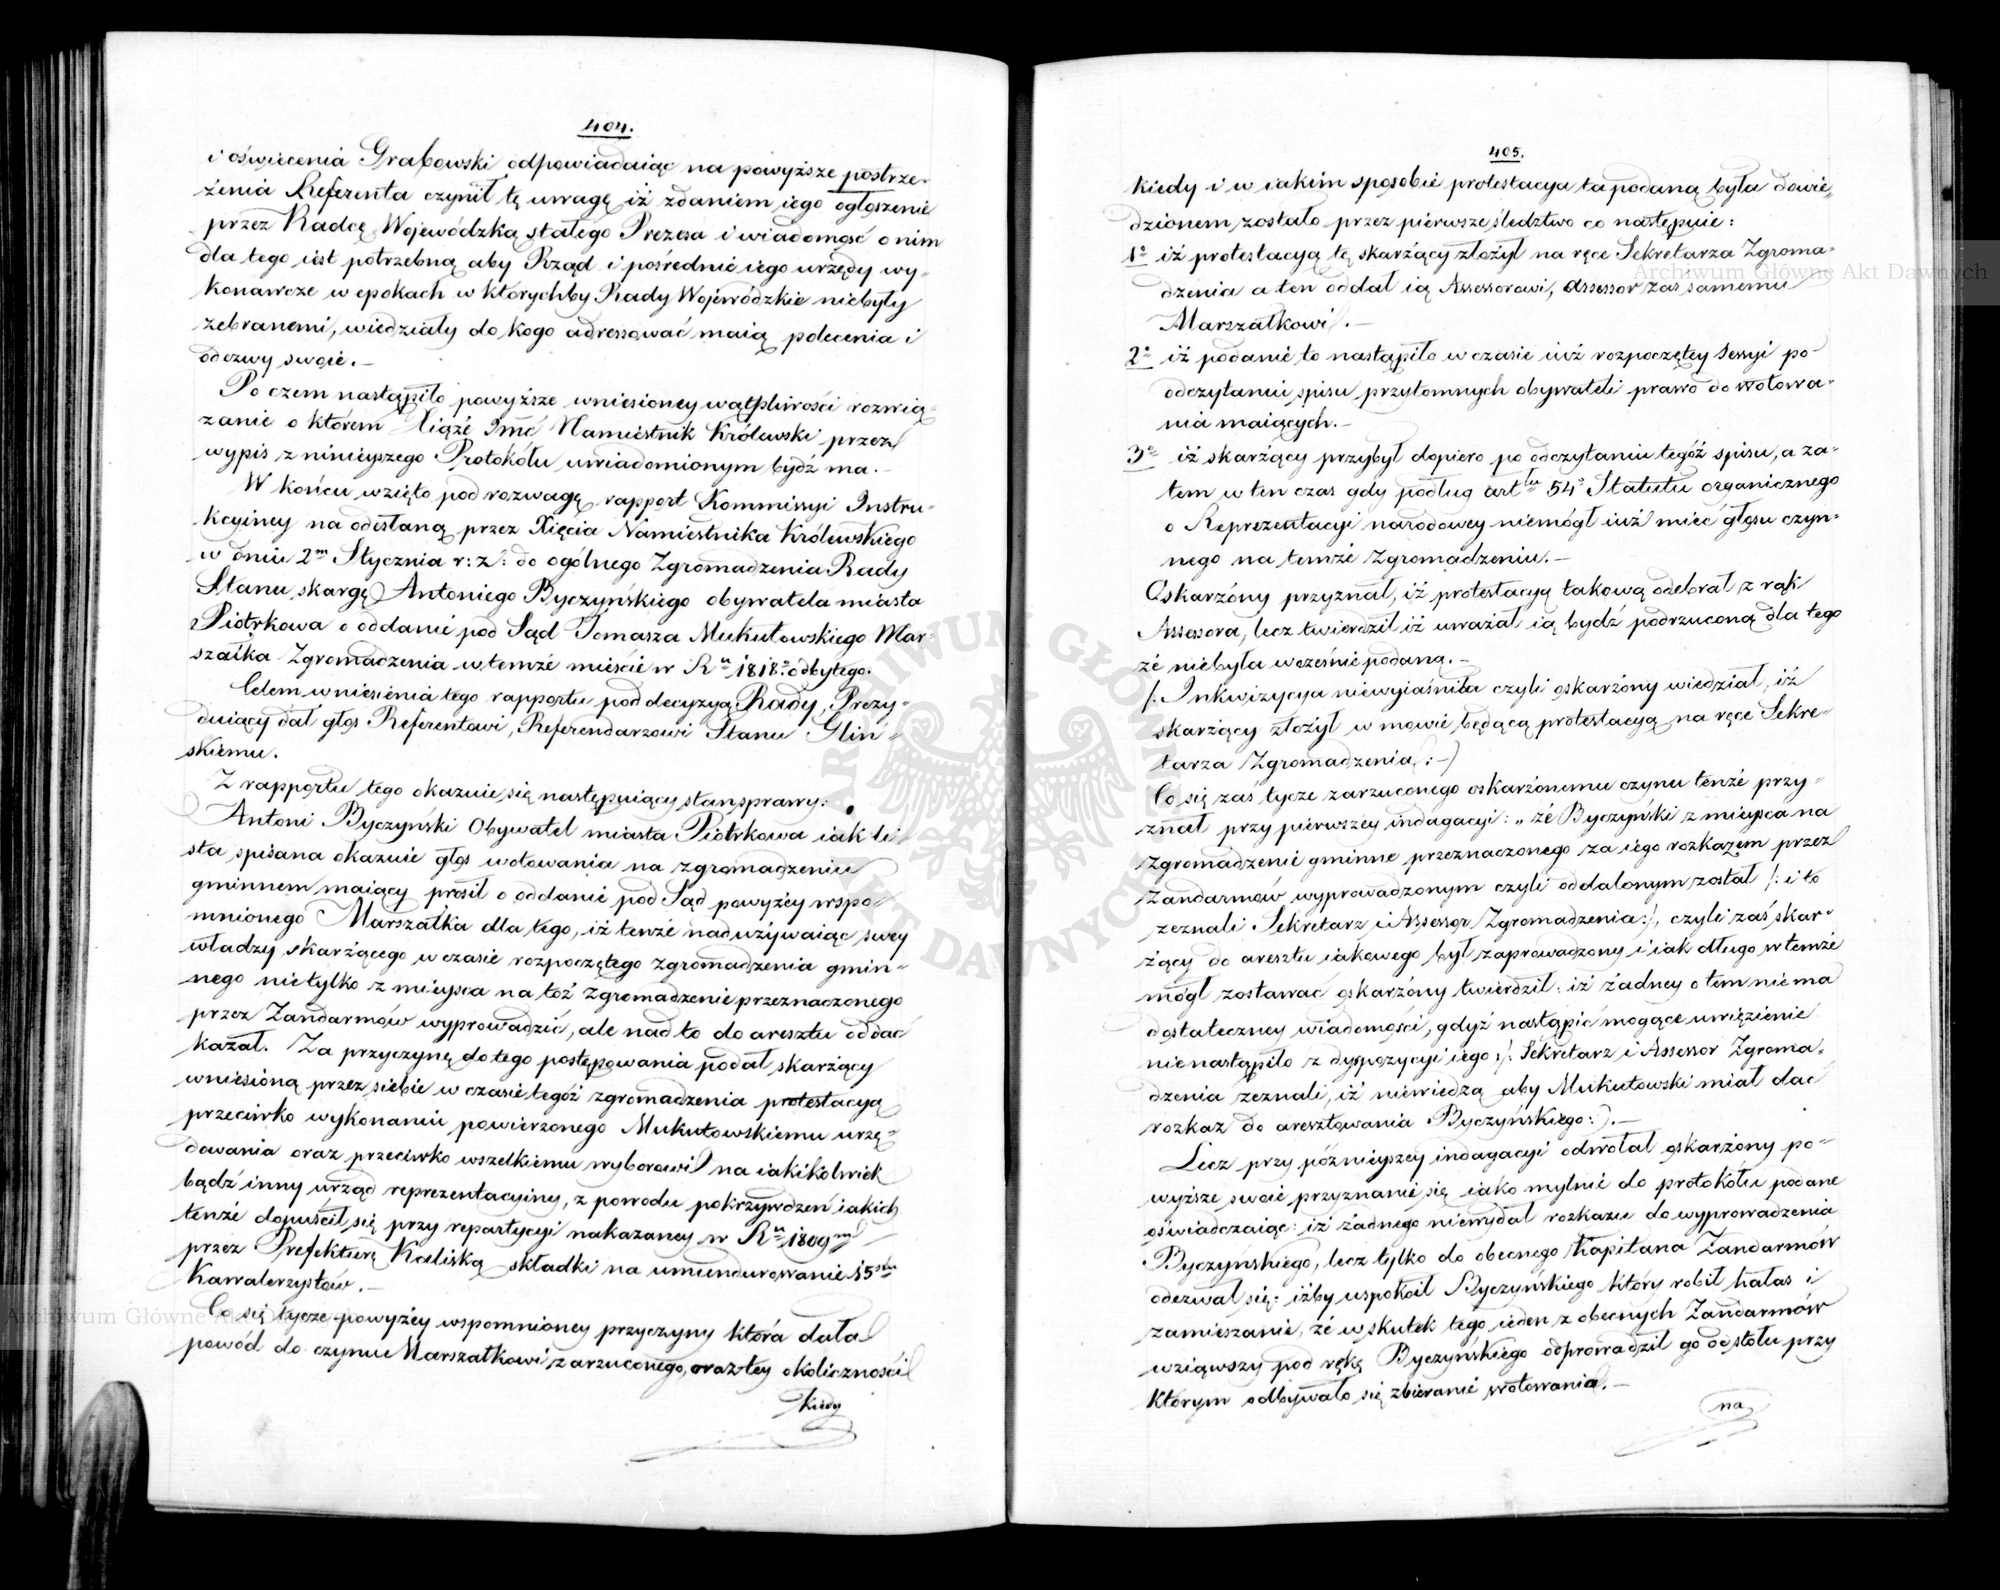 404.
i oświecenia Grabowski odpowiadaiąc na powyższe postrze-
żenia Referenta czynił tę uwagę iż zdaniem iego ogłoszenie
przez Radcę Wojewódzką stałego Prezesa i wiadomość o nim
dla tego iest potrzebną aby Rząd i pośrednie iego urzędy wy-
konawcze w epokach w którychby Rady Wojewódzkie niebyły
zebranemi, wiedziały do kogo adressować maią polecenia i
odezwy swoie.—
Po czem nastąpiło powyższe wniesioney wątpliwości rozwią-
zanie o którem Xiąże Jmć Namiestnik Królewski przez
wypis z ninieyszego Protokółu uwiadomionym bydź ma.—
W końcu wzięto pod rozwagę rapport Kommissyi Instru-
kcyiney na odesłaną przez Xięcia Namiestnika Królewskiego
w dniu 2m Stycznia r: z: do ogólnego Zgromadzenia Rady
Stanu skargę Antoniego Byczyńskiego obywatela miasta
Piotrkowa o oddanie pod Sąd Tomasza Mukułowskiego Mar-
szałka Zgromadzenia w temże mieście w Ru 1818o odbytego.
Celem wniesienia tego rapportu pod decyzyą Rady, Prezy-
duiący dał głos Referentowi, Referendarzowi Stanu Glin-
skiemu.
Z rapportu tego okazuie się następuiący stan sprawy.
Antoni Byczyński Obywatel miasta Piotrkowa iak li-
sta spisana okazuie głos wotowania na zgromadzeniu
gminnem maiący prosił o oddanie pod Sąd powyżey wspo-
mnionego Marszałka dla tego, iż tenże nadużywaiąc swey
władzy skarżącego w czasie rozpoczętego zgromadzenia gmin-
nego nietylko z mieysca na toż zgromadzenie przeznaczonego
przez Żandarmów wyprowadzić, ale nad to do aresztu oddać
kazał. Za przyczynę do tego postępowania podał skarżący
wniesioną przez siebie w czasie tegoż zgromadzenia protestacyą
przeciwko wykonaniu powierzonego Mukułowskiemu urzę-
dowania oraz przeciwko wszelkiemu wyborowi na iakikolwiek
bądź inny urząd reprezentacyiny, z powodu pokrzywdzeń iakich
tenże dopuścił się przy repartycyi nakazaney w Ru 1809m
przez Prefekturę Kaliską składki na umundurowanie 15stu
Kawalerzystów.—
Co się tycze powyżey wspomnioney przyczyny która dała
powód do czynu Marszałkowi zarzuconego, oraz tey okoliczności
kiedy
405.
kiedy i w iakim sposobie protestacya ta podaną była dowie-
dzionem zostało przez pierwsze śledztwo co następuie:
1o iż protestacyą tę skarżący złożył na ręce Sekretarza Zgroma-
dzenia a ten oddał ią Assessorowi, Assessor zaś samemu
Marszałkowi.—
2o iż podanie to nastąpiło w czasie iuż rozpoczętey Sessyi po
odczytaniu spisu przytomnych obywateli prawo do wotowa-
nia maiących.—
3o iż skarżący przybył dopiero po odczytaniu tegoż spisu, a za-
tem w ten czas gdy podług arttu 54o Statutu organicznego
o Reprezentacyi narodowey niemógł iuż mieć głosu czyn-
nego na temże Zgromadzeniu.—
Oskarżony przyznał, iż protestacyą takową odebrał z rąk
Assessora, lecz twierdził iż uważał ią bydź podrzuconą dla tego
że niebyła wcześnie podaną.—
/: Inkwizycya niewyiaśniła czyli oskarżony wiedział, iż
skarżący złożył w mowie będącą protestacyą na ręce Sekre-
tarza Zgromadzenia :—/
Co się zaś tycze zarzuconego oskarżonemu czynu tenże przy-
znał przy pierwszey indagacyi: „że Byczyński z mieysca na
zgromadzenie gminne przeznaczonego za iego rozkazem przez
Żandarmów wyprowadzonym czyli oddalonym został /: i to
zeznali Sekretarz i Assessor Zgromadzenia :/, czyli zaś skar-
żący do aresztu iakowego był zaprowadzony i iak długo w temże
mógł zostawać oskarżony twierdził: iż żadney o tem niema
dostateczney wiadomości, gdyż nastąpić mogące uwięzienie
nienastąpiło z dyspozycyi iego /: Sekretarz i Assessor Zgroma-
dzenia zeznali, iż niewiedzą aby Mukułowski miał dać
rozkaz do aresztowania Byczyńskiego :/.—
Lecz przy późnieyszey indagacyi odwołał oskarżony po-
wyższe swoie przyznanie się iako mylnie do protokółu podane
oświadczaiąc: iż żadnego niewydał rozkazu do wyprowadzenia
Byczyńskiego, lecz tylko do obecnego Kapitana Żandarmów
odezwał się: iżby uspokoił Byczyńskiego który robił hałas i
zamieszanie, że w skutek tego ieden z obecnych Żandarmów
wziąwszy pod rękę Byczyńskiego odprowadził go od stołu przy
którym odbywało się zbieranie wotowania.—
na
Archiwum Główne Akt Dawnych
Archiwum Główne Akt Dawnych
ARCHIWUM GŁÓWNE AKT DAWNYCH